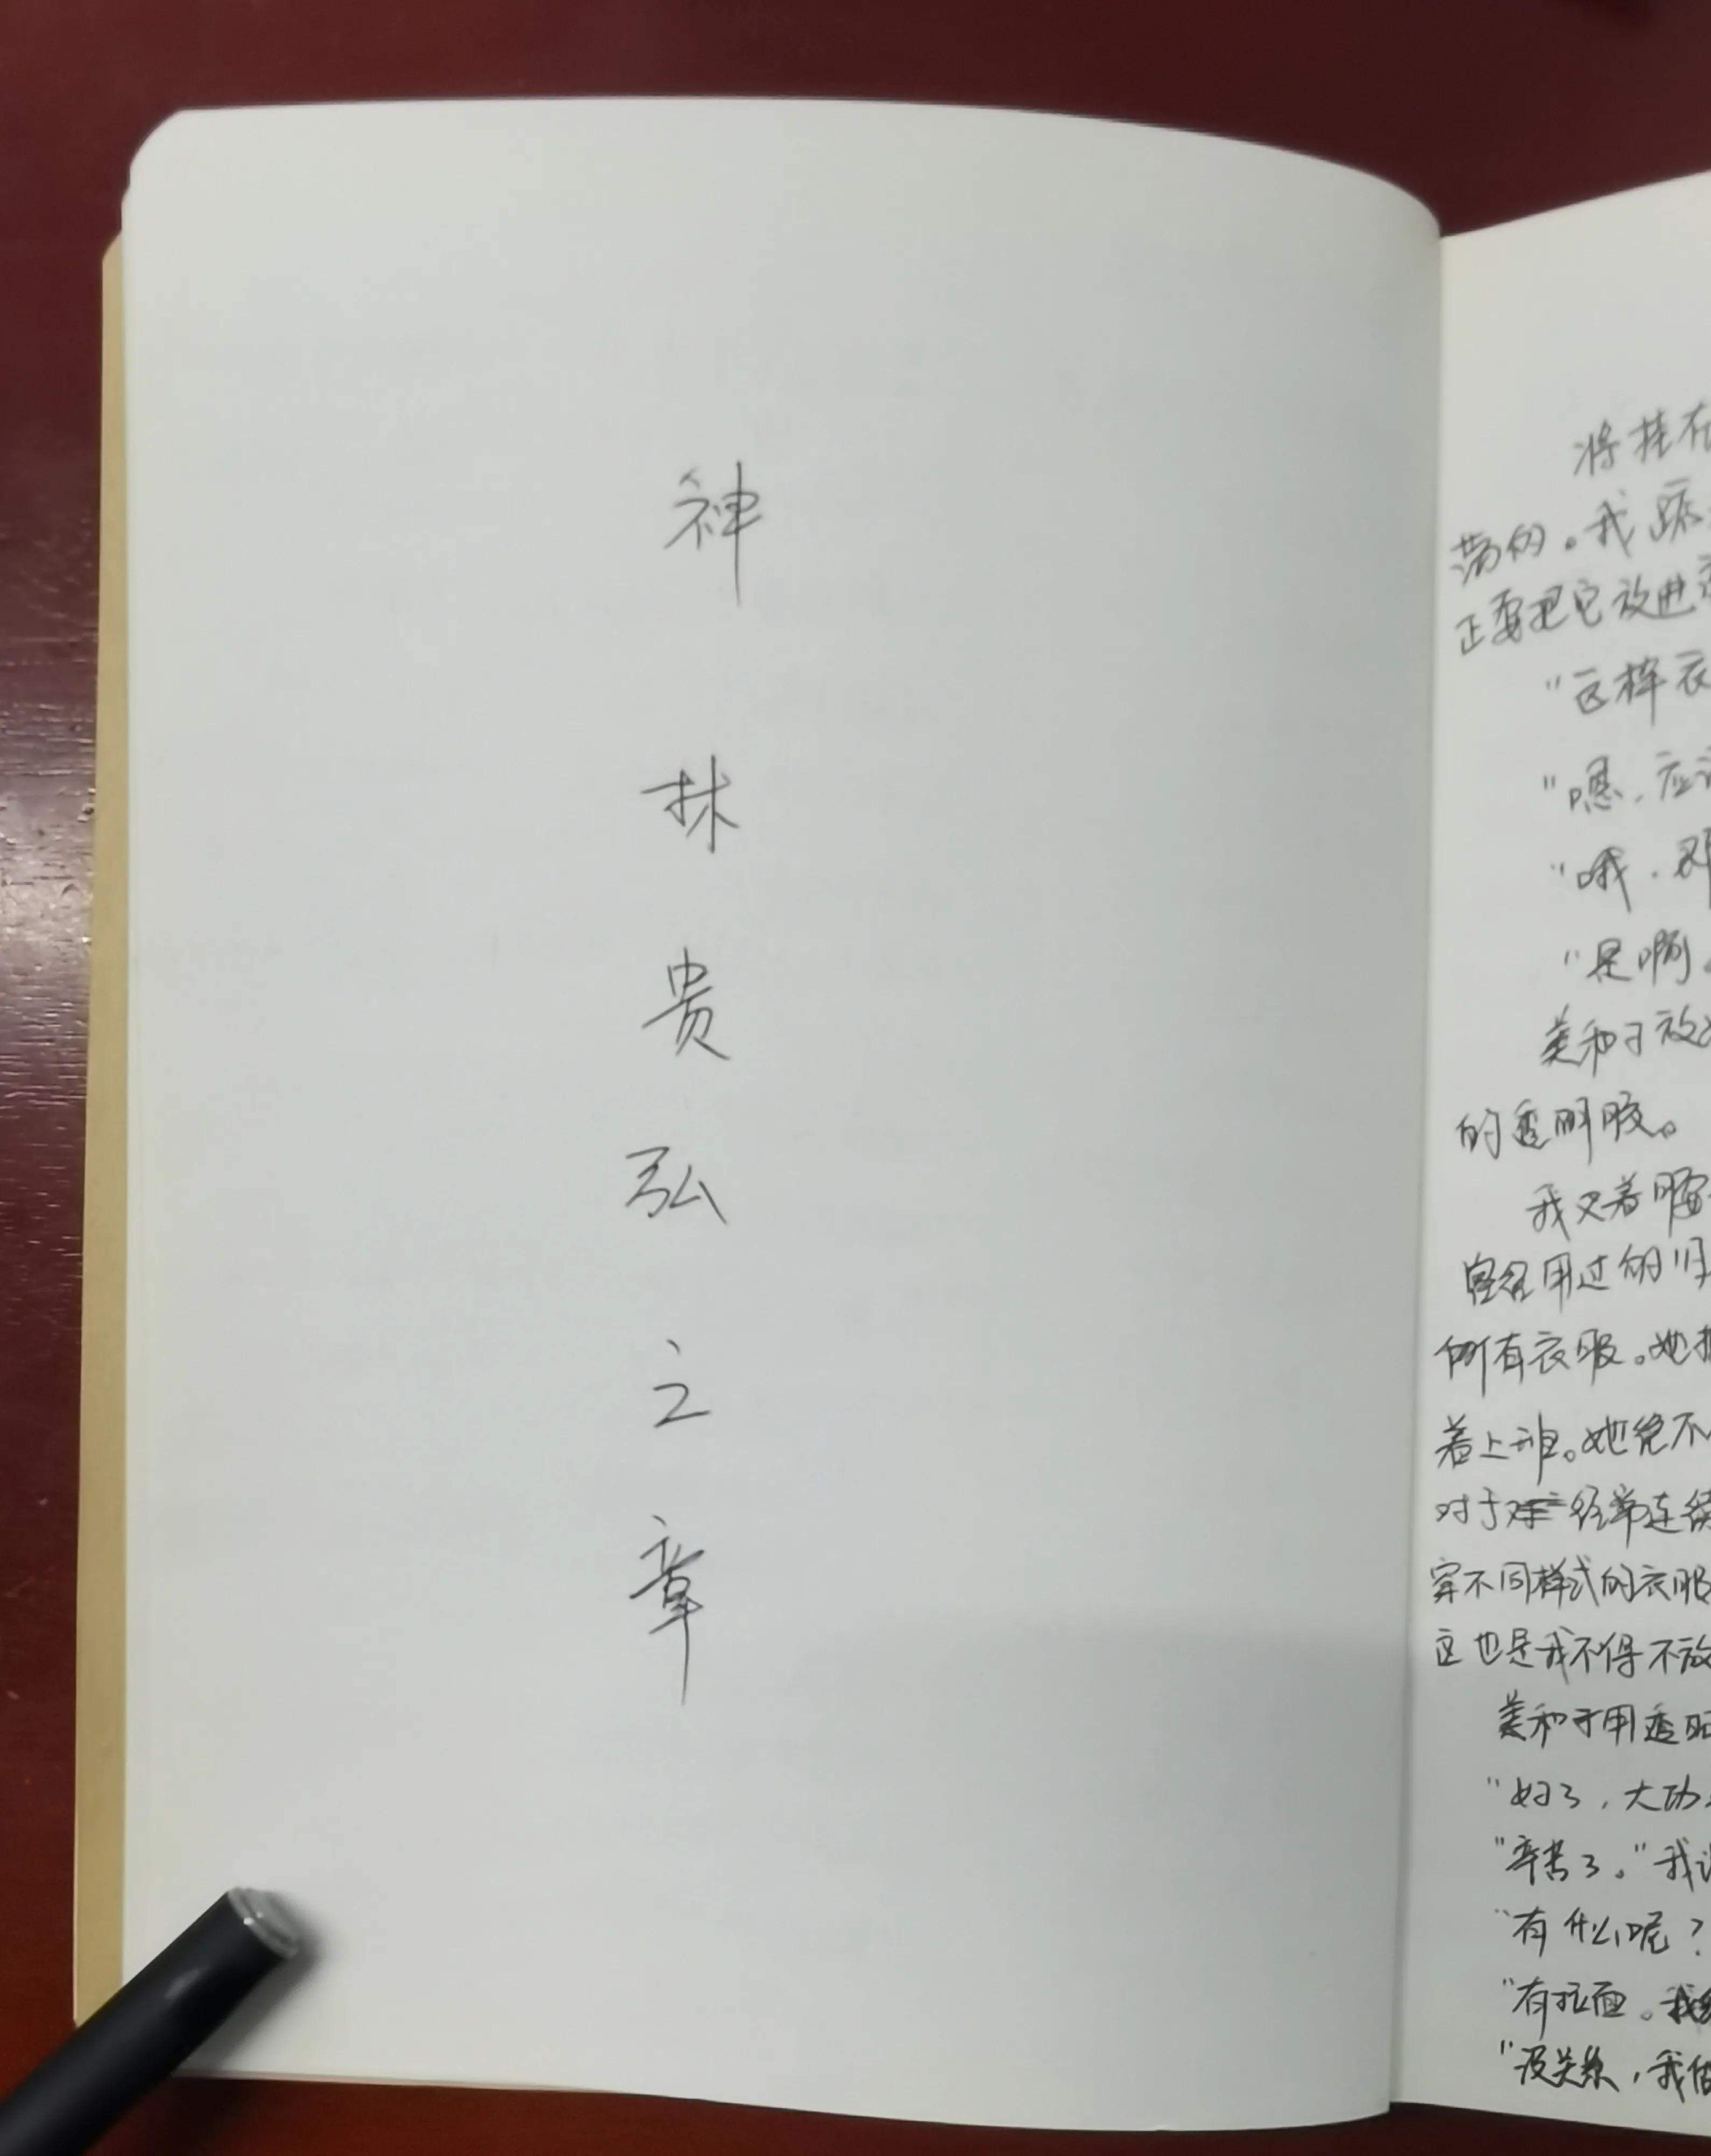 神林贵弘之章
将挂在
荡的。我
正要把它放进
"这样衣
"嗯，应
"哦，那
"是啊。
美和子放
的透明胶。
我又着
所有衣服。她
着上班。她绝不
对于 经常连续
穿不同样式的衣服
这也是我不得不放
美和子用透明
"好了，大功
"辛苦了。"我说
"有什么呢？
"有拉面。我
"没关系，我